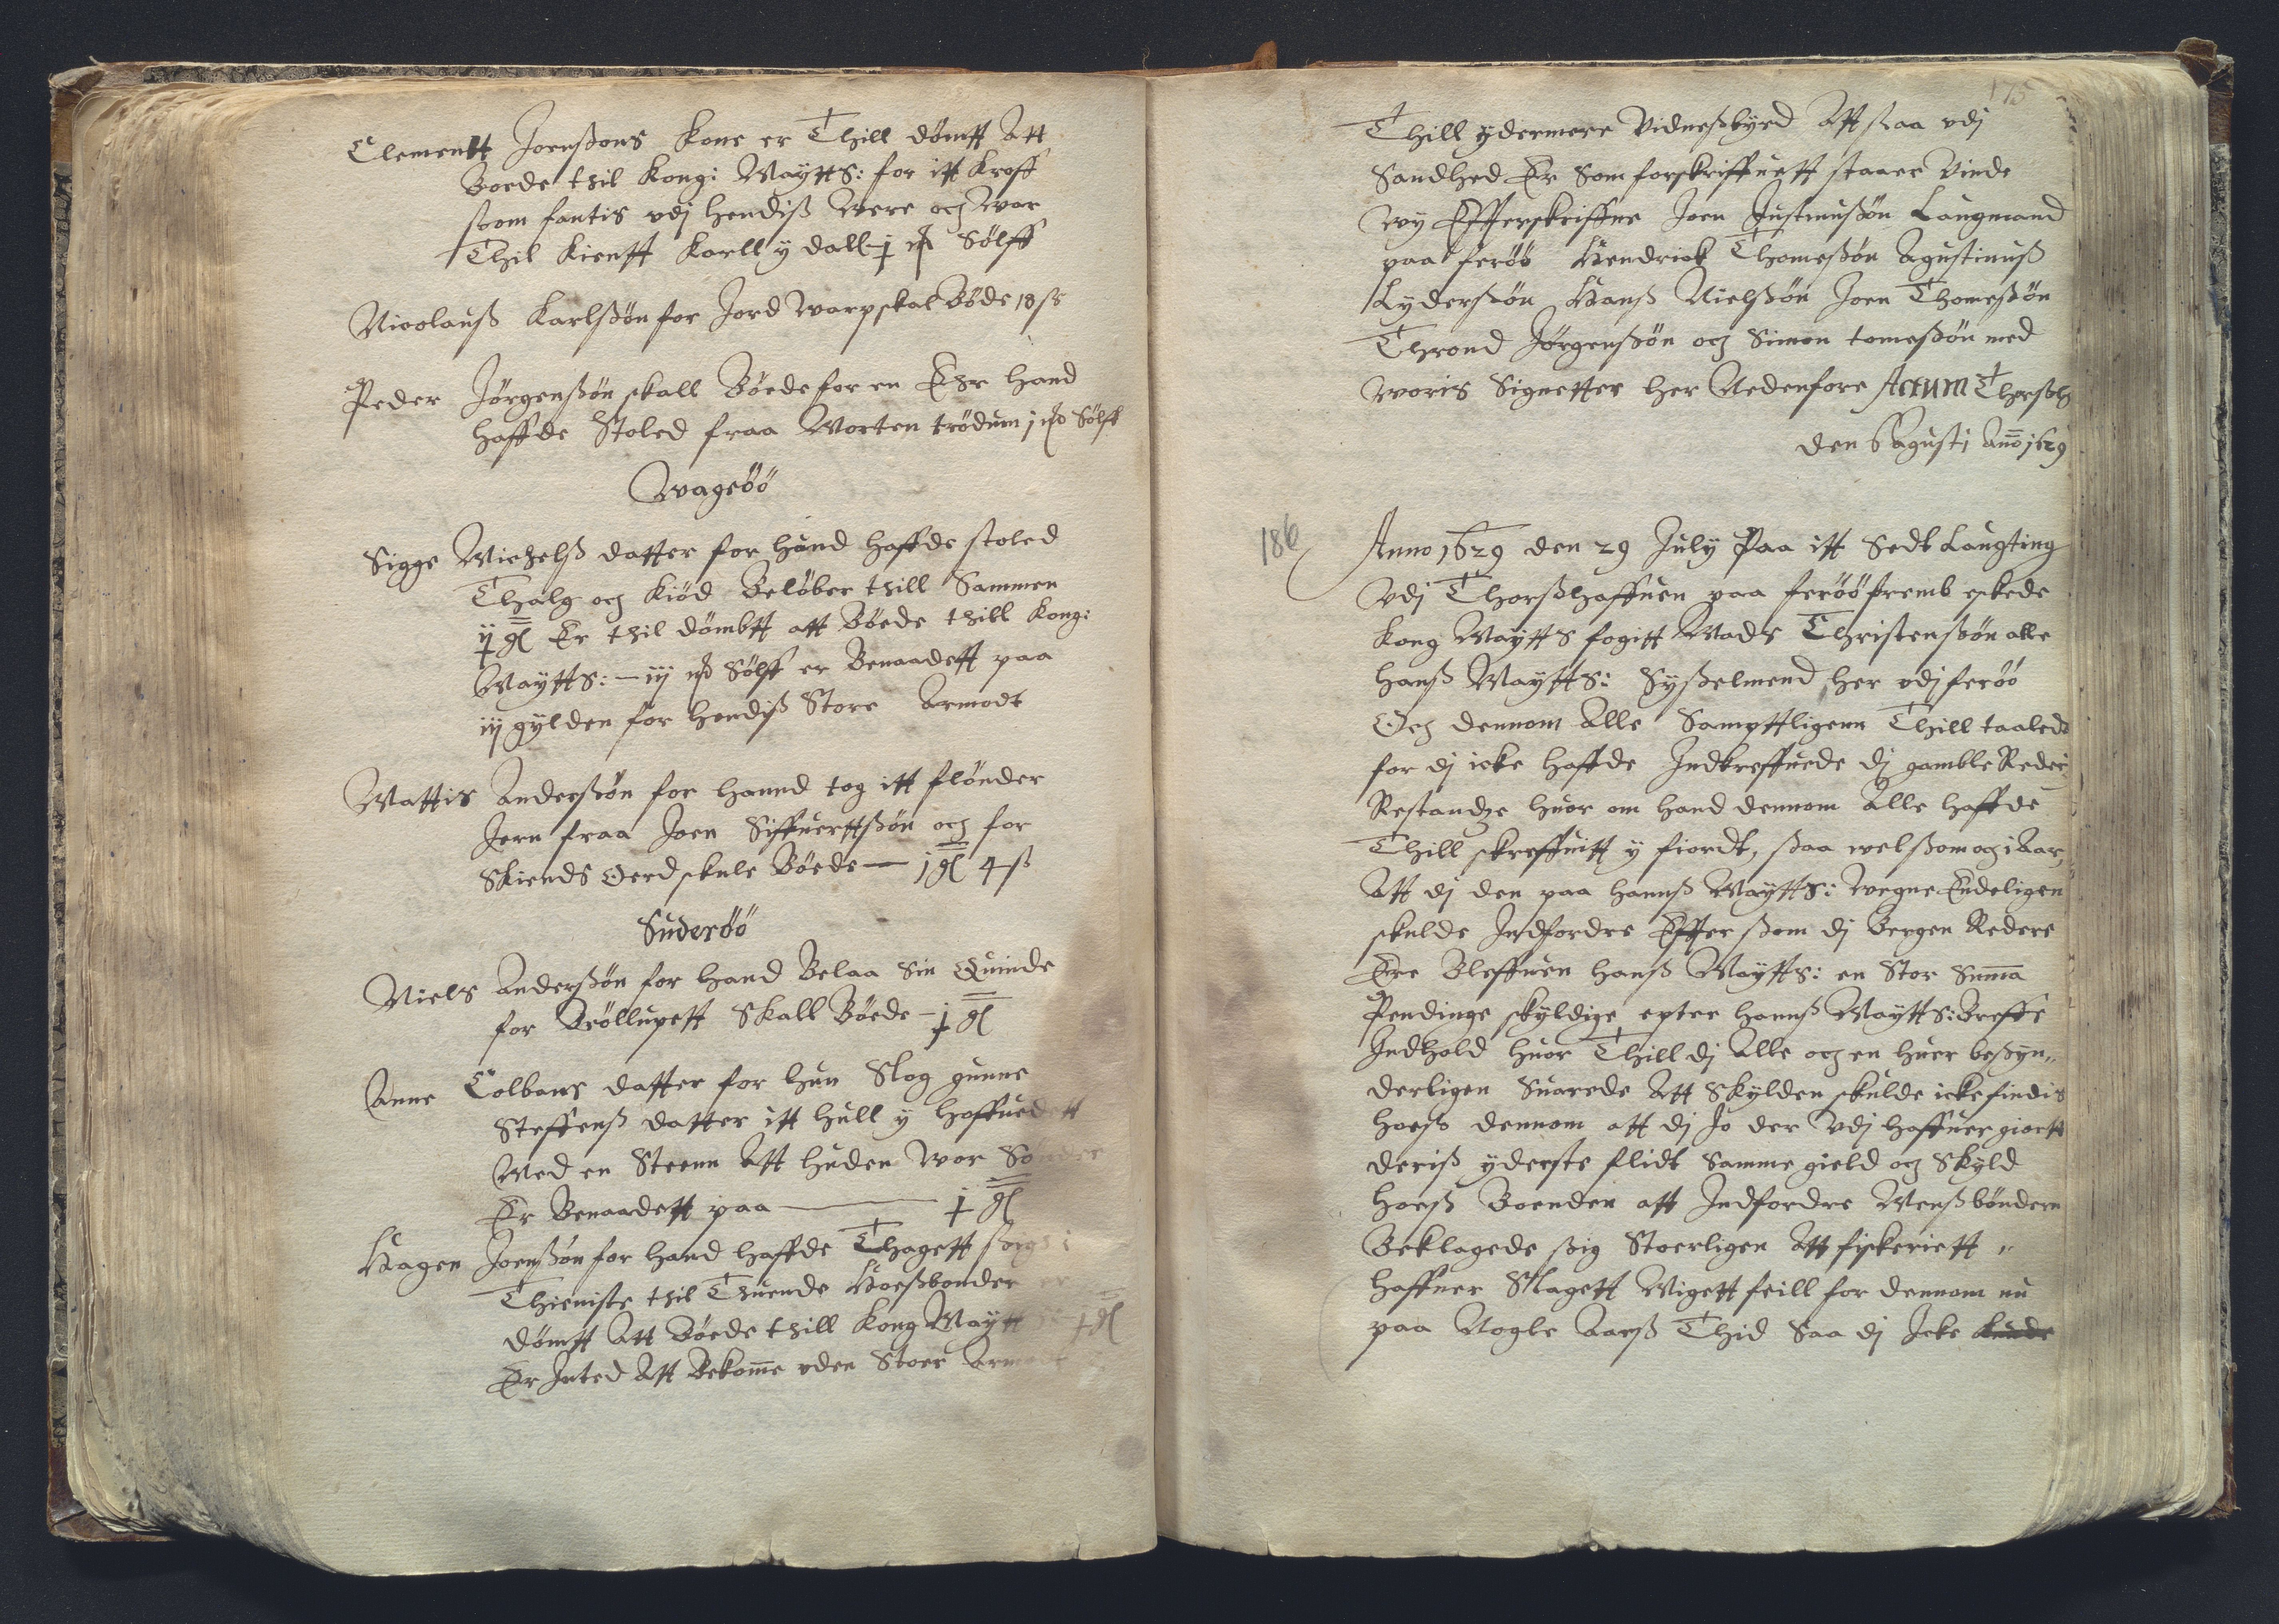 Clementt Joenßons Kone er Thill dömtt Att
Boede thil Kong: Maÿtts: for itt Kroff
ßom fantis vdj hendiß Were och War
Thil Kientt Karll ÿ dall j Sölff
Nicolauß Karlßön for Jord Warp skal Böde 18 ſs
Peder Jörgenßön skall Böede for en Ehr hand
haffde Stoled fraa Morten trödum j Sölff
Wageöö
Sigge Michelß datter for hund haffde stoled
Thalg och Kiöd Belöber thill Sammen
ij gl Er thil dömbtt att Böede thill Kong:
Maÿtts: – iij Sölff er Benaadett paa
iij gÿlden for hendiß Store Armodt
Mattis Anderßön for hannd tog itt flönder
Jern fraa Joen Siffuerttßön och for
Skiends Oerd skule Böede — j gl 4 ß
Suderöö
Niels Anderßön for hand Belaa Sin Quinde
for Bröllupett Skall Böede – j gl
Anne Colbans datter for hun Slog gunne
Steffenß datter itt hull ÿ hoffuedett
Med en Steenn Att huden Wor Sönder
Er Benaadett paa — j gl
Hagen Joenßön for hand haffde Thagett ßorg i
Thieniste thil Thuende Hoeßbonder er
dömtt Att Böede thill Kong Maÿtt j gl
Er Inted Att Bekomme vden Stoer Armodt
175
Thill ÿdermere Vidneßbÿrd Att ßaa vdj
Sandhed Er Som forskriffuett staaer Vinde
wÿ Effterskriffne Joen Justinußön Laugmand
paa feröö Hendrick Thomeßön Agustinuß
Lÿderßön Hanß Nielßön Joen Thomeßön
Thrond Jörgenßön och Simon tomeßön med
woris Signetter her Nedenfore Actum Thorßh
den 6 Agusti Anno 1629
186
Anno 1629 den 29 Julÿ Paa itt Sedt Laugting
Vdj Thorßhaffuen paa feröö fremb eskede
Kong Maÿtts fogitt Mads Christenßön alle
hanß Maÿtts: Sÿßelmend her vdj feröö
Och dennom Alle Sampttligenn Thill taalede
for dj icke haffde Indkreffuede dj gamble Reder
Restandze huor om hand dennom Alle haffde
Thill skreffuitt ÿ fiordt, ßaa wel ßom och i Aar,
Att dj den paa hannß Maÿtts: Wegne Endeligen
skulde Indfordre Effter ßom dj Bergen Redere
Ere Bleffuen hanß Maÿtts: en Stor Summa
Pendinge skÿldige epter hannß Maÿtts: Breffs
Indhold huor Thill dj Alle och en huer beßÿn„
derligen Suarede Att Skÿlden skulde icke findis
hoeß dennom att dj Jo der Vdj haffuer giortt
deriß ÿderste flidt Samme gield och Skÿld
hoeß Boenden att Indfordre Menß bönderne
Beklagede ßig Stoerligen Att fiskeriett „
haffuer Slagett Migett feill for dennom nu
paa Nogle Aarß Thid Saa dj Icke kunde